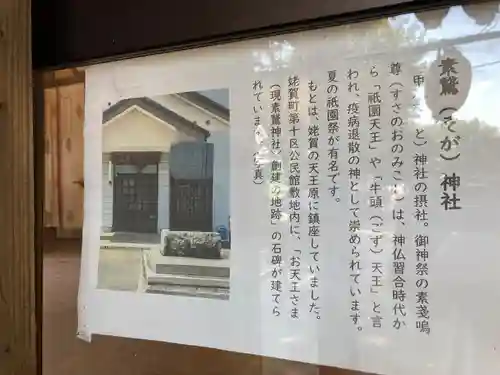 素鵞（そが）神社
甲　　　と）神社の摂社。御神祭の素戔嗚
尊（すさのおのみこ　）は、神仏習合時代か
ら「祇園天王」や「牛頭（ごず）天王」と言
われ、疫病退散の神として崇められています。
夏の祇園祭が有名です。
もとは、姥賀の天王原に鎮座していました。
姥賀町第十区公民館敷地内に、「お天王さま
（現素鵞神社）創建の地跡」の石碑が建てら
れていま　　　真）